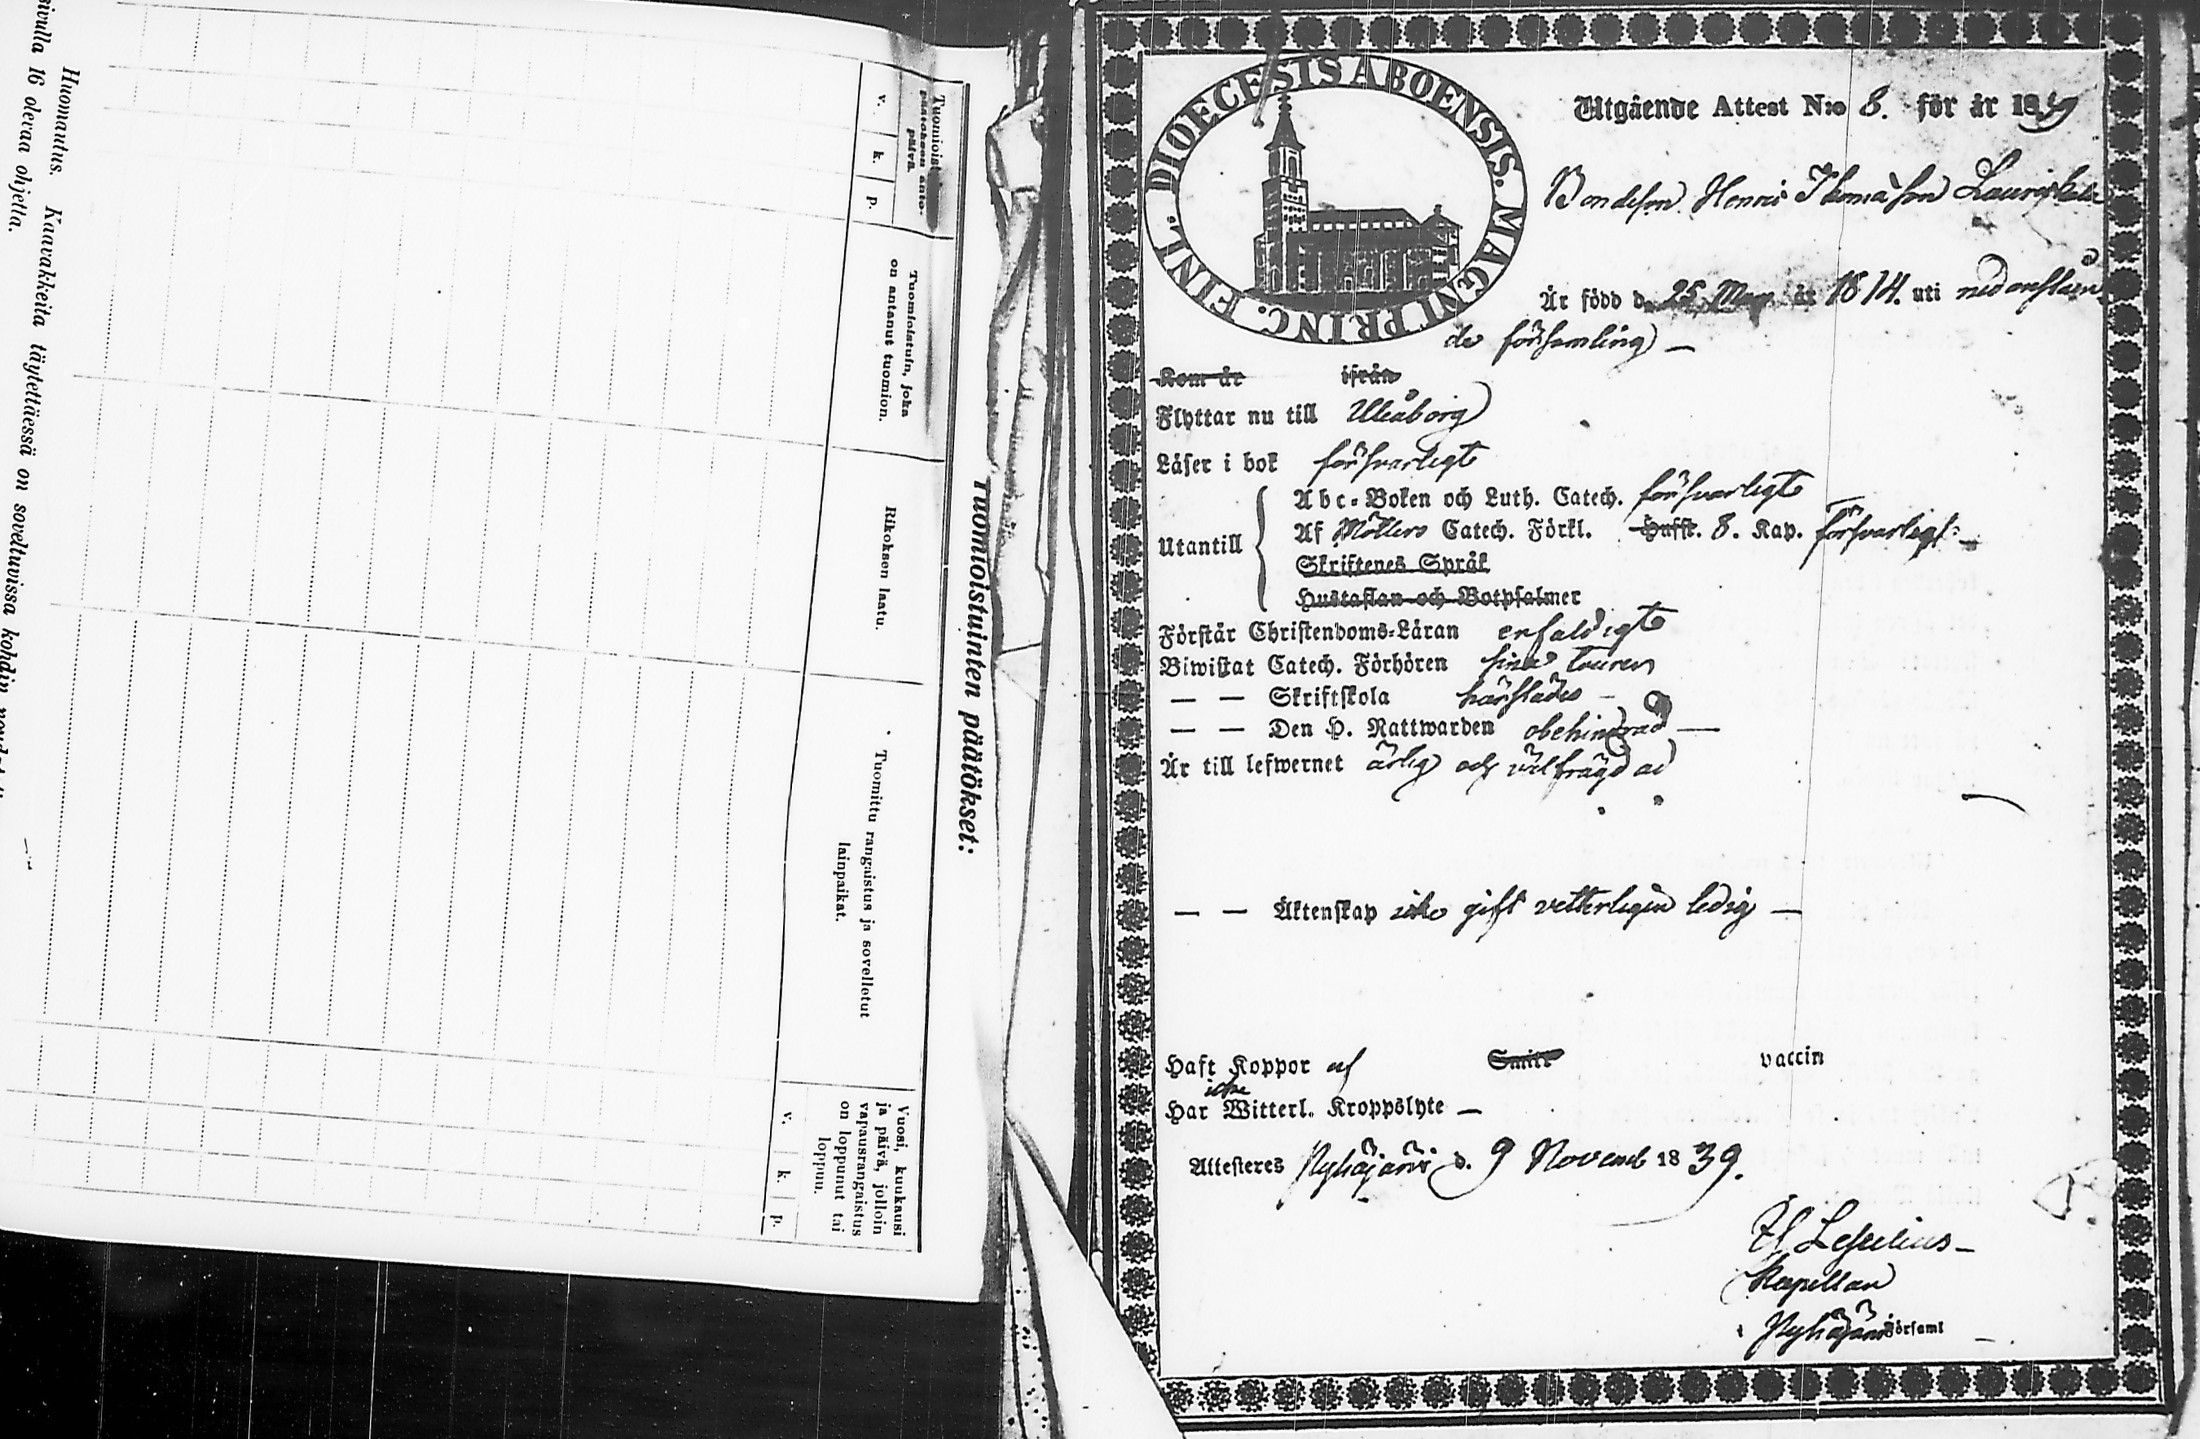 sivulla 16 olevaa ohjetta.
Huomautus. Kaavakkeita täytettäessä on soveltuvissa kohdin
Tuomioistuinten päätökset:
päätöksen anto-
päivä.
v. k. p.
Tuomioistuin, joka
on antanut tuomion.
Rikoksen laatu.
Tuomittu rangaistus ja sovelletut
lainpaikat.
Vuosi, kuukausi
ja päivä, jolloin
vapausrangaistus
on loppunut tai
loppuu.
v. k. p.
DIOECESIS ABOENSIS. MAGNI PRINC. FINL.
Utgående Attest N:o 8. för år 1839
Bondeson Henric Thomasson
Är född d. 25 May år 1814. uti nedanståen
de församling) —
Kom år ifrån
Flyttar nu till Uleåborg
Läser i bok försvarligt
Utantill
Abc-Boken och Luth. Catech. försvarligt
Af Möllers Catech. Förkl. Hufst. 8. Kap. försvarligt —
Skriftenes Språk
Hustaflan och Botpsalmer
Förstår Christendoms-Läran enfaldigt
Biwistat Catech. Förhören sina tourer
— — Skriftskola härstädes —
— — Den H. Nattwarden obehindrad —
Är till lefwernet ärlig och välfrägdad
— — Äktenskap icke gift vetterligen ledig —
Haft Koppor af Smitt vaccin
icke
Har Witterl. Kroppslyte —
Attesteres Pyhäjärvi d. 9 Novemb 1839.
Kapellan
Pyhäjärvi Församl